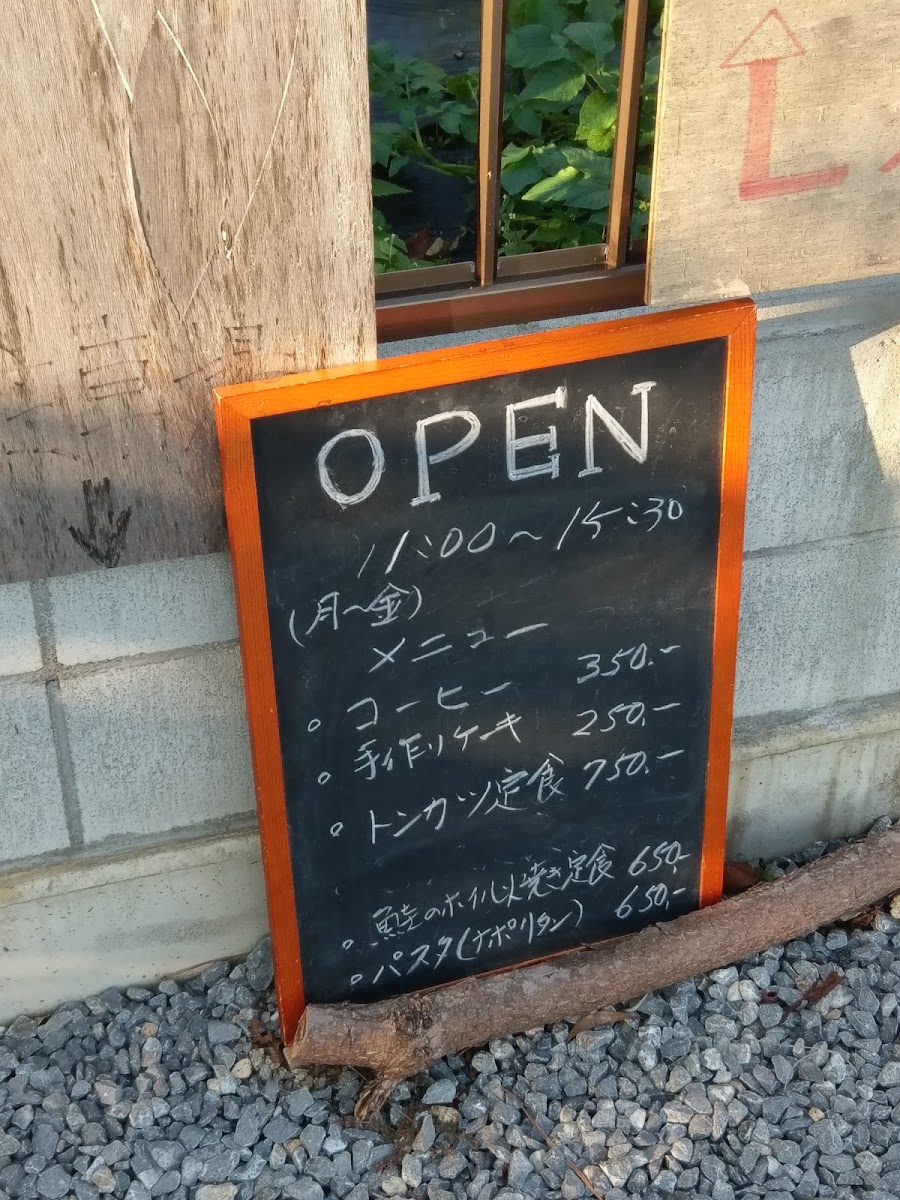 OPEN
11:00～15:30
(月～金)
メニュー
○ コーヒー 350.-
○ 手作りケーキ 250.-
○ トンカツ定食 750.-
○ 鮭のホイル焼き定食 650.-
○ パスタ(ナポリタン) 650.-